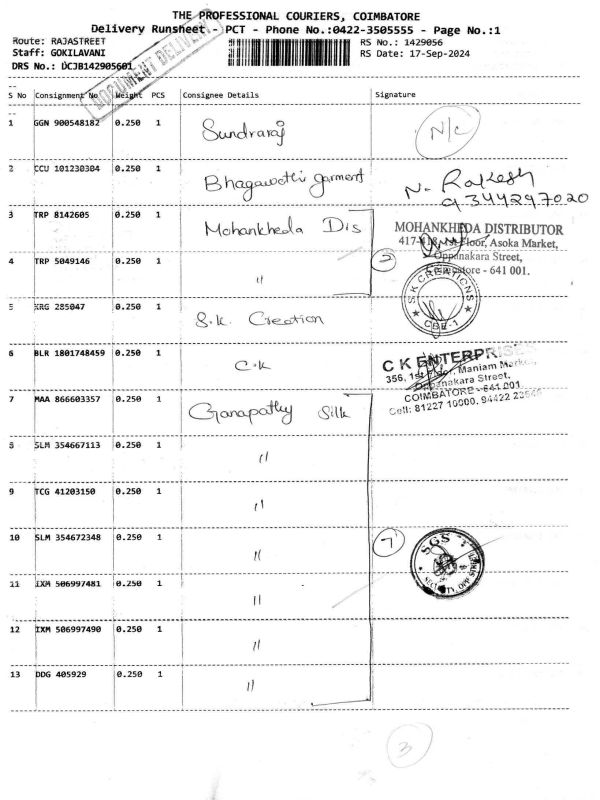 THE PROFESSIONAL COURIERS, COIMBATORE
Delivery Runsheet - PCT - Phone No.:0422-3505555 - Page No.:1
Route: RAJASTREET
RS No.: 1429056
Staff: GOKILAVANI
RS Date: 17-Sep-2024
DRS No.: DCJB142905601
DOCUMENT DELIVERY
S No Consignment No Weight PCS Consignee Details Signature
1 GGN 900548182 0.250 1 Sundraraj N/c
2 CCU 101230304 0.250 1 Bhagawathi garment N. Rakesh
9344297020
3 TRP 8142605 0.250 1 Mohankheda Dis MOHANKHEDA DISTRIBUTOR
417-418, 1st Floor, Asoka Market,
4 TRP 5049146 0.250 1 " 2 Oppanakara Street,
Coimbatore - 641 001.
5 KRG 285047 0.250 1 S.K. Creation S.K CREATIONS
CBE-1
6 BLR 1801748459 0.250 1 C.K C K ENTERPRISES
356, 1st Floor, Maniam Market,
Oppanakara Street,
COIMBATORE - 641 001
Cell: 81227 10000, 94422
7 MAA 866603357 0.250 1 Ganapathy Silk
8 SLM 354667113 0.250 1 "
9 TCG 41203150 0.250 1 "
10 SLM 354672348 0.250 1 " 7 SGS
11 IXM 506997481 0.250 1 "
12 IXM 506997490 0.250 1 "
13 DDG 405929 0.250 1 "
3